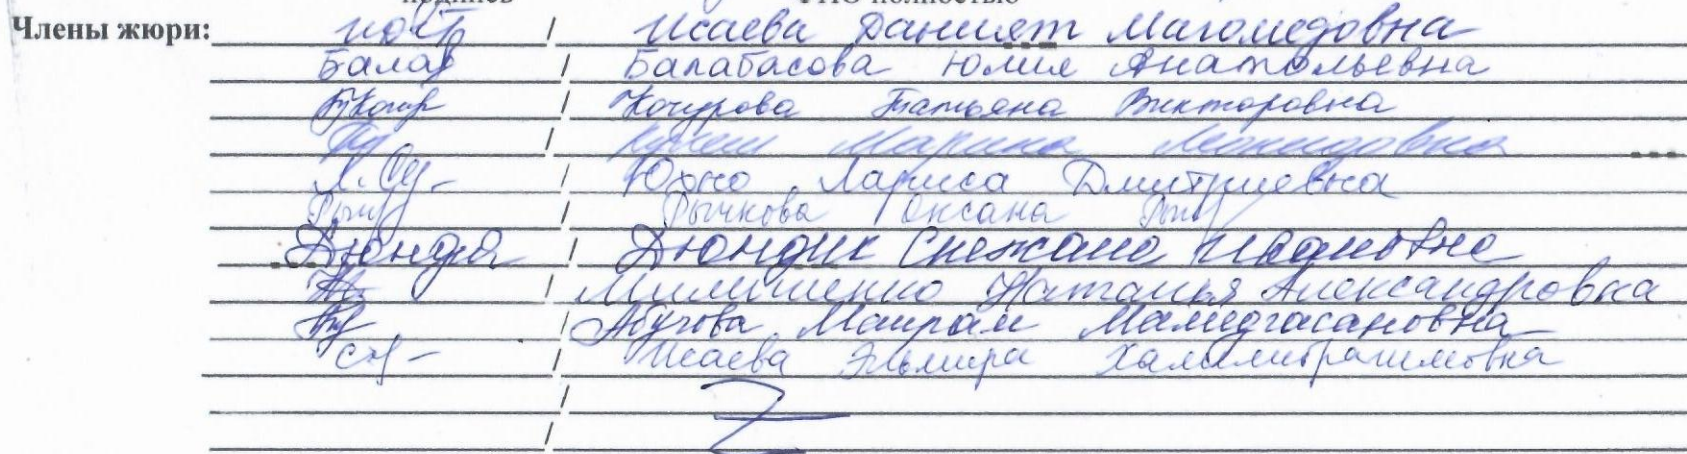 подпись ФИО полностью
Члены жюри: / Исаева Даният Магомедовна
Балаб / Балабасова Юлия Анатольевна
/ Кочурова Татьяна Викторовна
/ Марина
Л. / Юхно Лариса Дмитриевна
/ Рычкова Оксана
Дюндик / Дюндик Снежана Ивановна
/ Милишенко Наталья Александровна
/ Абучова Маирам Мамедгасановна
/ Исаева Эльмира Халилибрагимовна
/
/